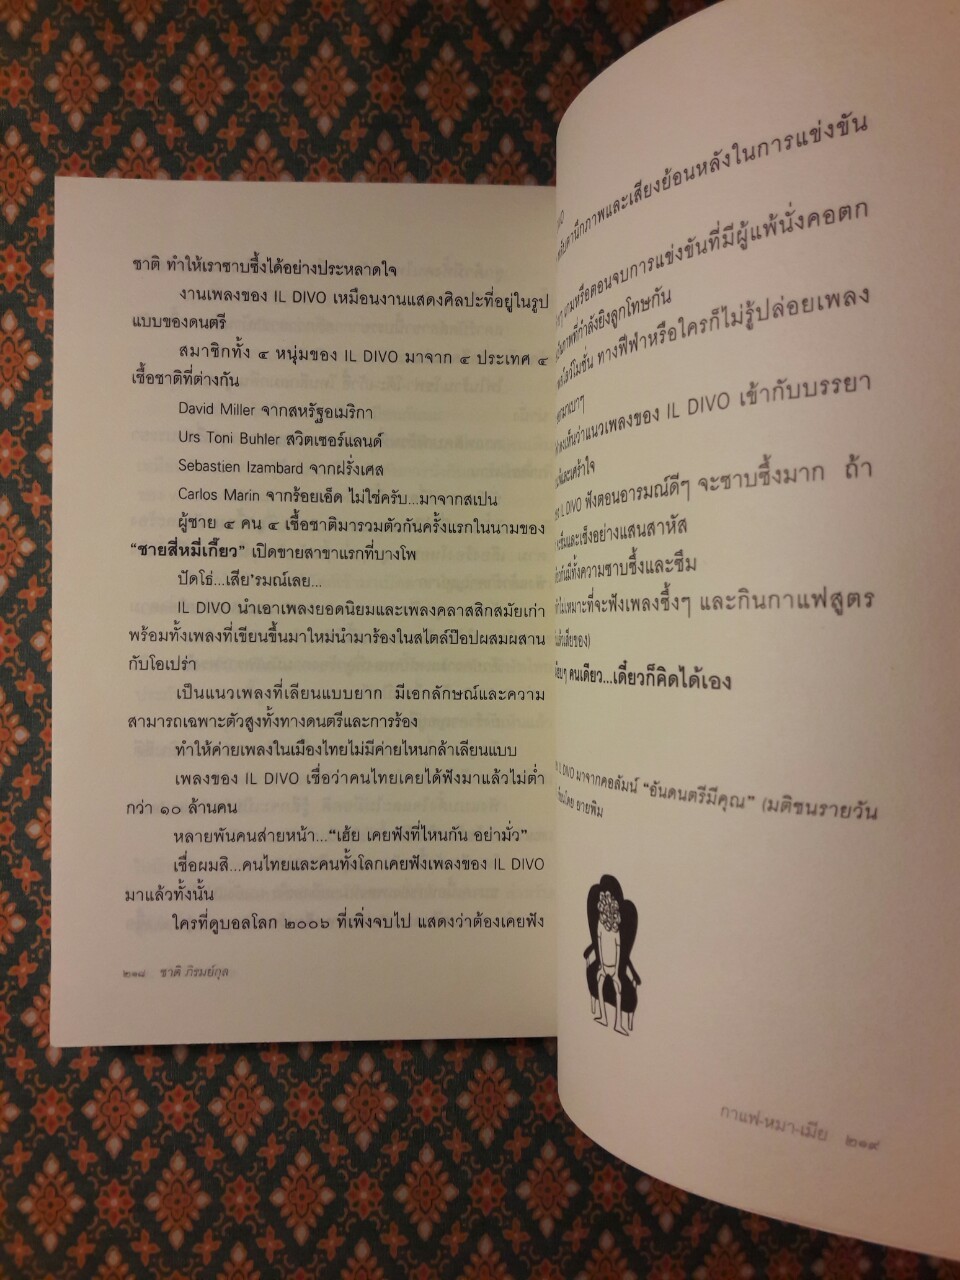 ชาติ ทำให้เราซาบซึ้งได้อย่างประหลาดใจ
งานเพลงของ IL DIVO เหมือนงานแสดงศิลปะที่อยู่ในรูป
แบบของดนตรี
สมาชิกทั้ง ๔ หนุ่มของ IL DIVO มาจาก ๔ ประเทศ ๔
เชื้อชาติที่ต่างกัน
David Miller จากสหรัฐอเมริกา
Urs Toni Buhler สวิตเซอร์แลนด์
Sebastien Izambard จากฝรั่งเศส
Carlos Marin จากร้อยเอ็ด ไม่ใช่ครับ...มาจากสเปน
ผู้ชาย ๔ คน ๔ เชื้อชาติมารวมตัวกันครั้งแรกในนามของ
“ชายสี่หมี่เกี๊ยว” เปิดขายสาขาแรกที่บางโพ
ปัดโธ่...เสีย’รมณ์เลย...
IL DIVO นำเอาเพลงยอดนิยมและเพลงคลาสสิกสมัยเก่า
พร้อมทั้งเพลงที่เขียนขึ้นมาใหม่นำมาร้องในสไตล์ป๊อปผสมผสาน
กับโอเปร่า
เป็นแนวเพลงที่เลียนแบบยาก มีเอกลักษณ์และความ
สามารถเฉพาะตัวสูงทั้งทางดนตรีและการร้อง
ทำให้ค่ายเพลงในเมืองไทยไม่มีค่ายไหนกล้าเลียนแบบ
เพลงของ IL DIVO เชื่อว่าคนไทยเคยได้ฟังมาแล้วไม่ต่ำ
กว่า ๑๐ ล้านคน
หลายพันคนส่ายหน้า...“เฮ้ย เคยฟังที่ไหนกัน อย่ามั่ว”
เชื่อผมสิ...คนไทยและคนทั้งโลกเคยฟังเพลงของ IL DIVO
มาแล้วทั้งนั้น
ใครที่ดูบอลโลก ๒๐๐๖ ที่เพิ่งจบไป แสดงว่าต้องเคยฟัง
๒๑๘ ชาติ ภิรมย์กุล
ภาพและเสียงย้อนหลังในการแข่งขัน
หรือตอนจบการแข่งขันที่มีผู้แพ้นั่งคอตก
ภาพที่กำลังยิงลูกโทษกัน
ทางฟีฟ่าหรือใครก็ไม่รู้ปล่อยเพลง
มาเบาๆ
เห็นว่าแนวเพลงของ IL DIVO เข้ากับบรรยา
และเศร้าใจ
IL DIVO ฟังตอนอารมณ์ดีๆ จะซาบซึ้งมาก ถ้า
และเซ็งอย่างแสนสาหัส
มีทั้งความซาบซึ้งและซึม
ไม่เหมาะที่จะฟังเพลงซึ้งๆ และกินกาแฟสูตร
คนเดียว...เดี๋ยวก็คิดได้เอง
IL DIVO มาจากคอลัมน์ “อันดนตรีมีคุณ” (มติชนรายวัน
โดย ยายพิม
กาแฟ-หมา-เมีย ๒๑๙